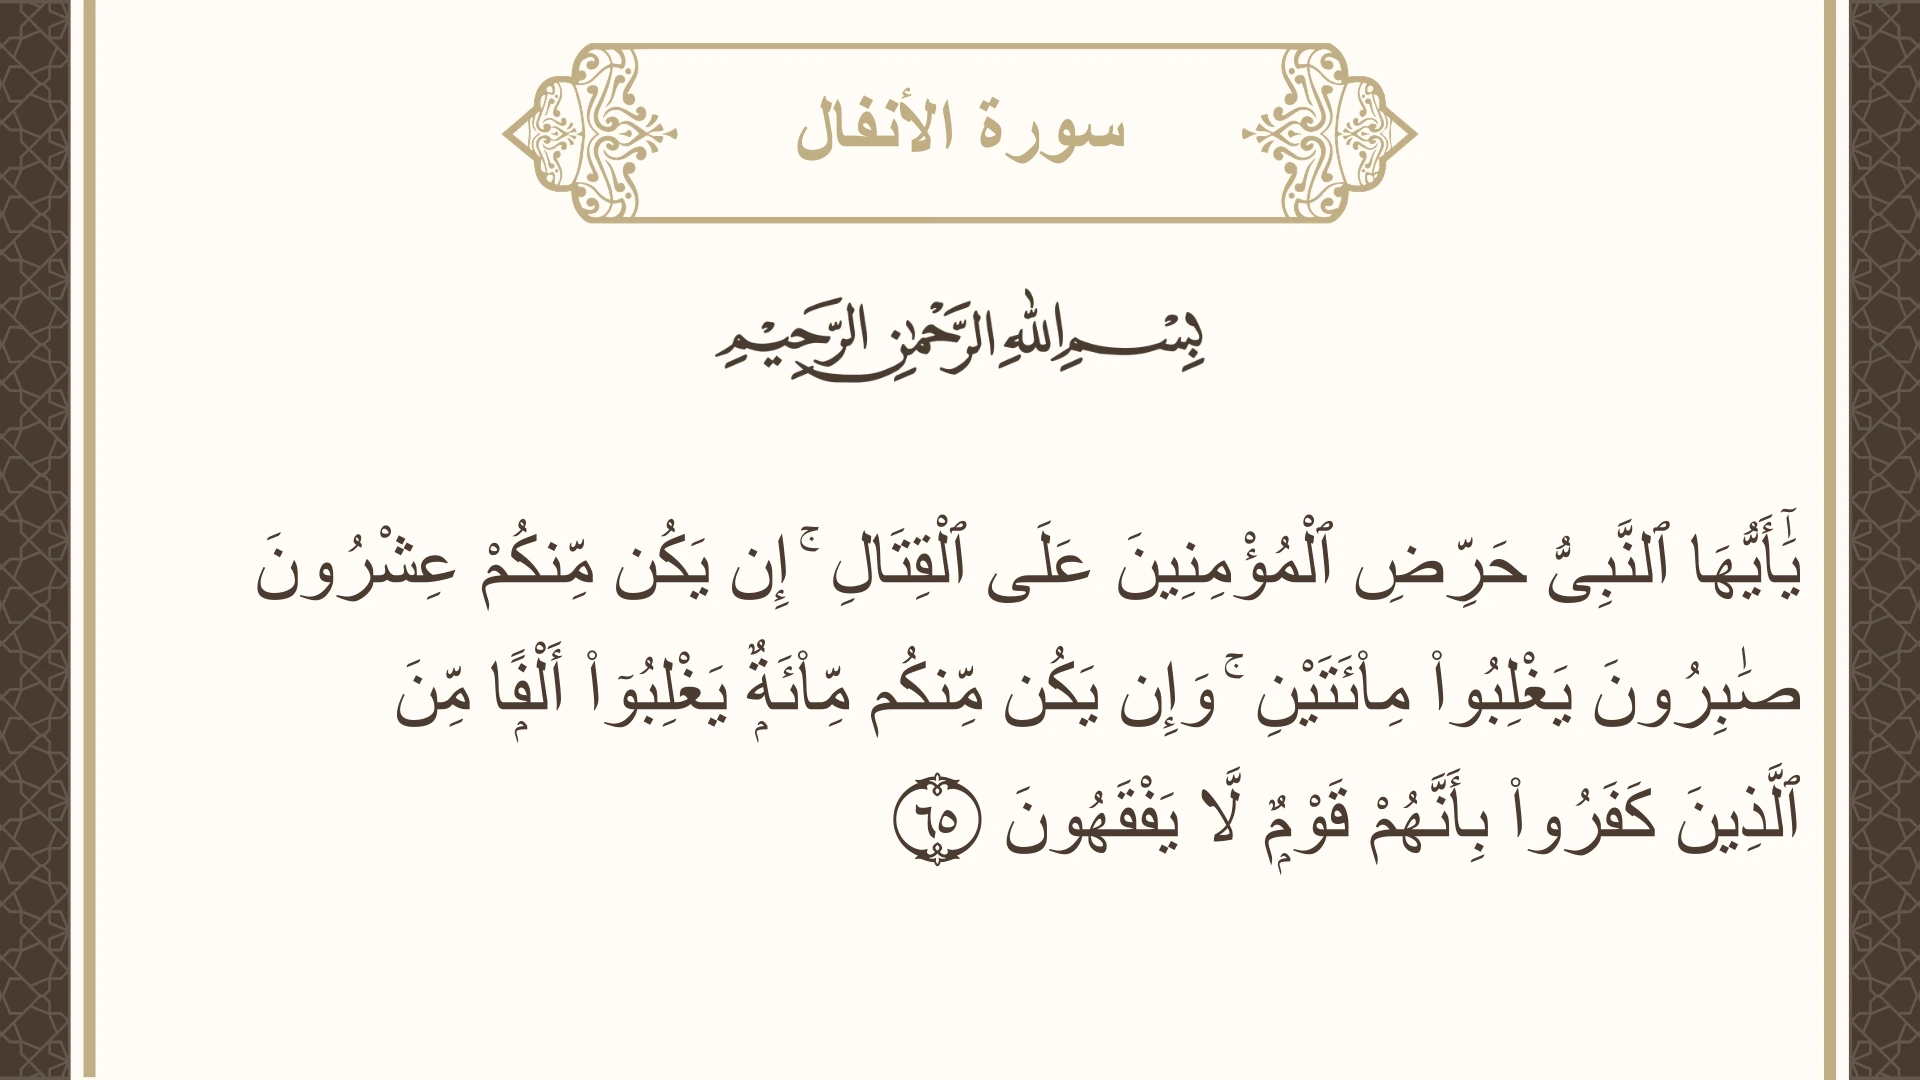 سورة الأنفال
بِسْمِ اللهِ الرَّحْمٰنِ الرَّحِيْمِ
يَٰٓأَيُّهَا ٱلنَّبِىُّ حَرِّضِ ٱلْمُؤْمِنِينَ عَلَى ٱلْقِتَالِ ۚ إِن يَكُن مِّنكُمْ عِشْرُونَ
صَٰبِرُونَ يَغْلِبُوا۟ مِا۟ئَتَيْنِ ۚ وَإِن يَكُن مِّنكُم مِّا۟ئَةٌۭ يَغْلِبُوٓا۟ أَلْفًۭا مِّنَ
ٱلَّذِينَ كَفَرُوا۟ بِأَنَّهُمْ قَوْمٌۭ لَّا يَفْقَهُونَ ٦٥